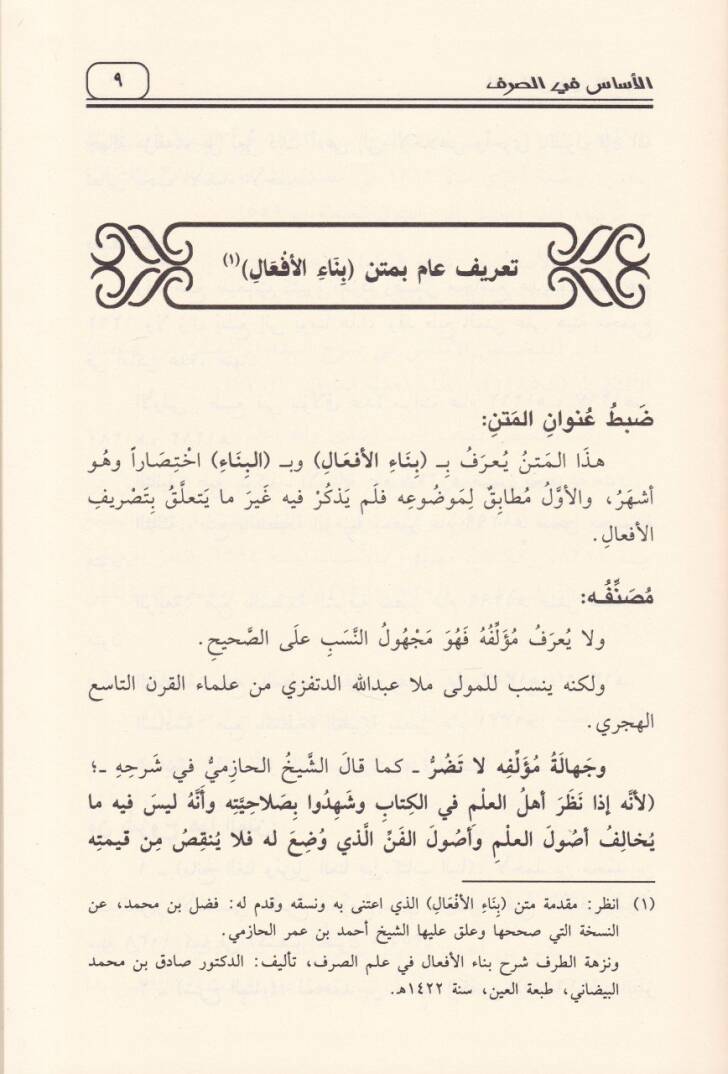 الأساس في الصرف
٩
تعريف عام بمتن (بِنَاءِ الأفْعَالِ)(١)
ضَبطُ عُنوانِ المَتنِ:
هذَا المَتنُ يُعرَفُ بِـ (بِنَاءِ الأفعَالِ) وبِـ (البِنَاءِ) اخْتِصَاراً وهُو
أشهَرُ، والأوَّلُ مُطابِقٌ لِمَوضُوعِه فلَم يَذكُرْ فيه غَيرَ ما يَتعلَّقُ بِتَصْريفِ
الأفعالِ.
مُصَنِّفُه:
ولا يُعرَفُ مُؤلِّفُهُ فَهُوَ مَجْهُولُ النَّسَبِ علَى الصَّحيحِ.
ولكنه ينسب للمولى ملا عبدالله الدتفزي من علماء القرن التاسع
الهجري.
وجَهالَةُ مُؤلِّفِه لا تَضُرُّ ـ كما قالَ الشَّيخُ الحازميُّ في شَرحِهِ ـ؛
(لأنَّه إذا نَظَرَ أهلُ العلْمِ في الكِتابِ وشَهِدُوا بِصَلاحِيَّتِه وأنَّهُ ليسَ فيه ما
يُخالِفُ أصُولَ العلْمِ وأصُولَ الفَنِّ الَّذي وُضِعَ له فلا يُنقِصُ مِن قيمتِه
(١) انظر: مقدمة متن (بِنَاءِ الأفْعَالِ) الذي اعتنى به ونسقه وقدم له: فضل بن محمد، عن
النسخة التي صححها وعلق عليها الشيخ أحمد بن عمر الحازمي.
ونزهة الطرف شرح بناء الأفعال في علم الصرف، تأليف: الدكتور صادق بن محمد
البيضاني، طبعة العين، سنة ١٤٢٢هـ.